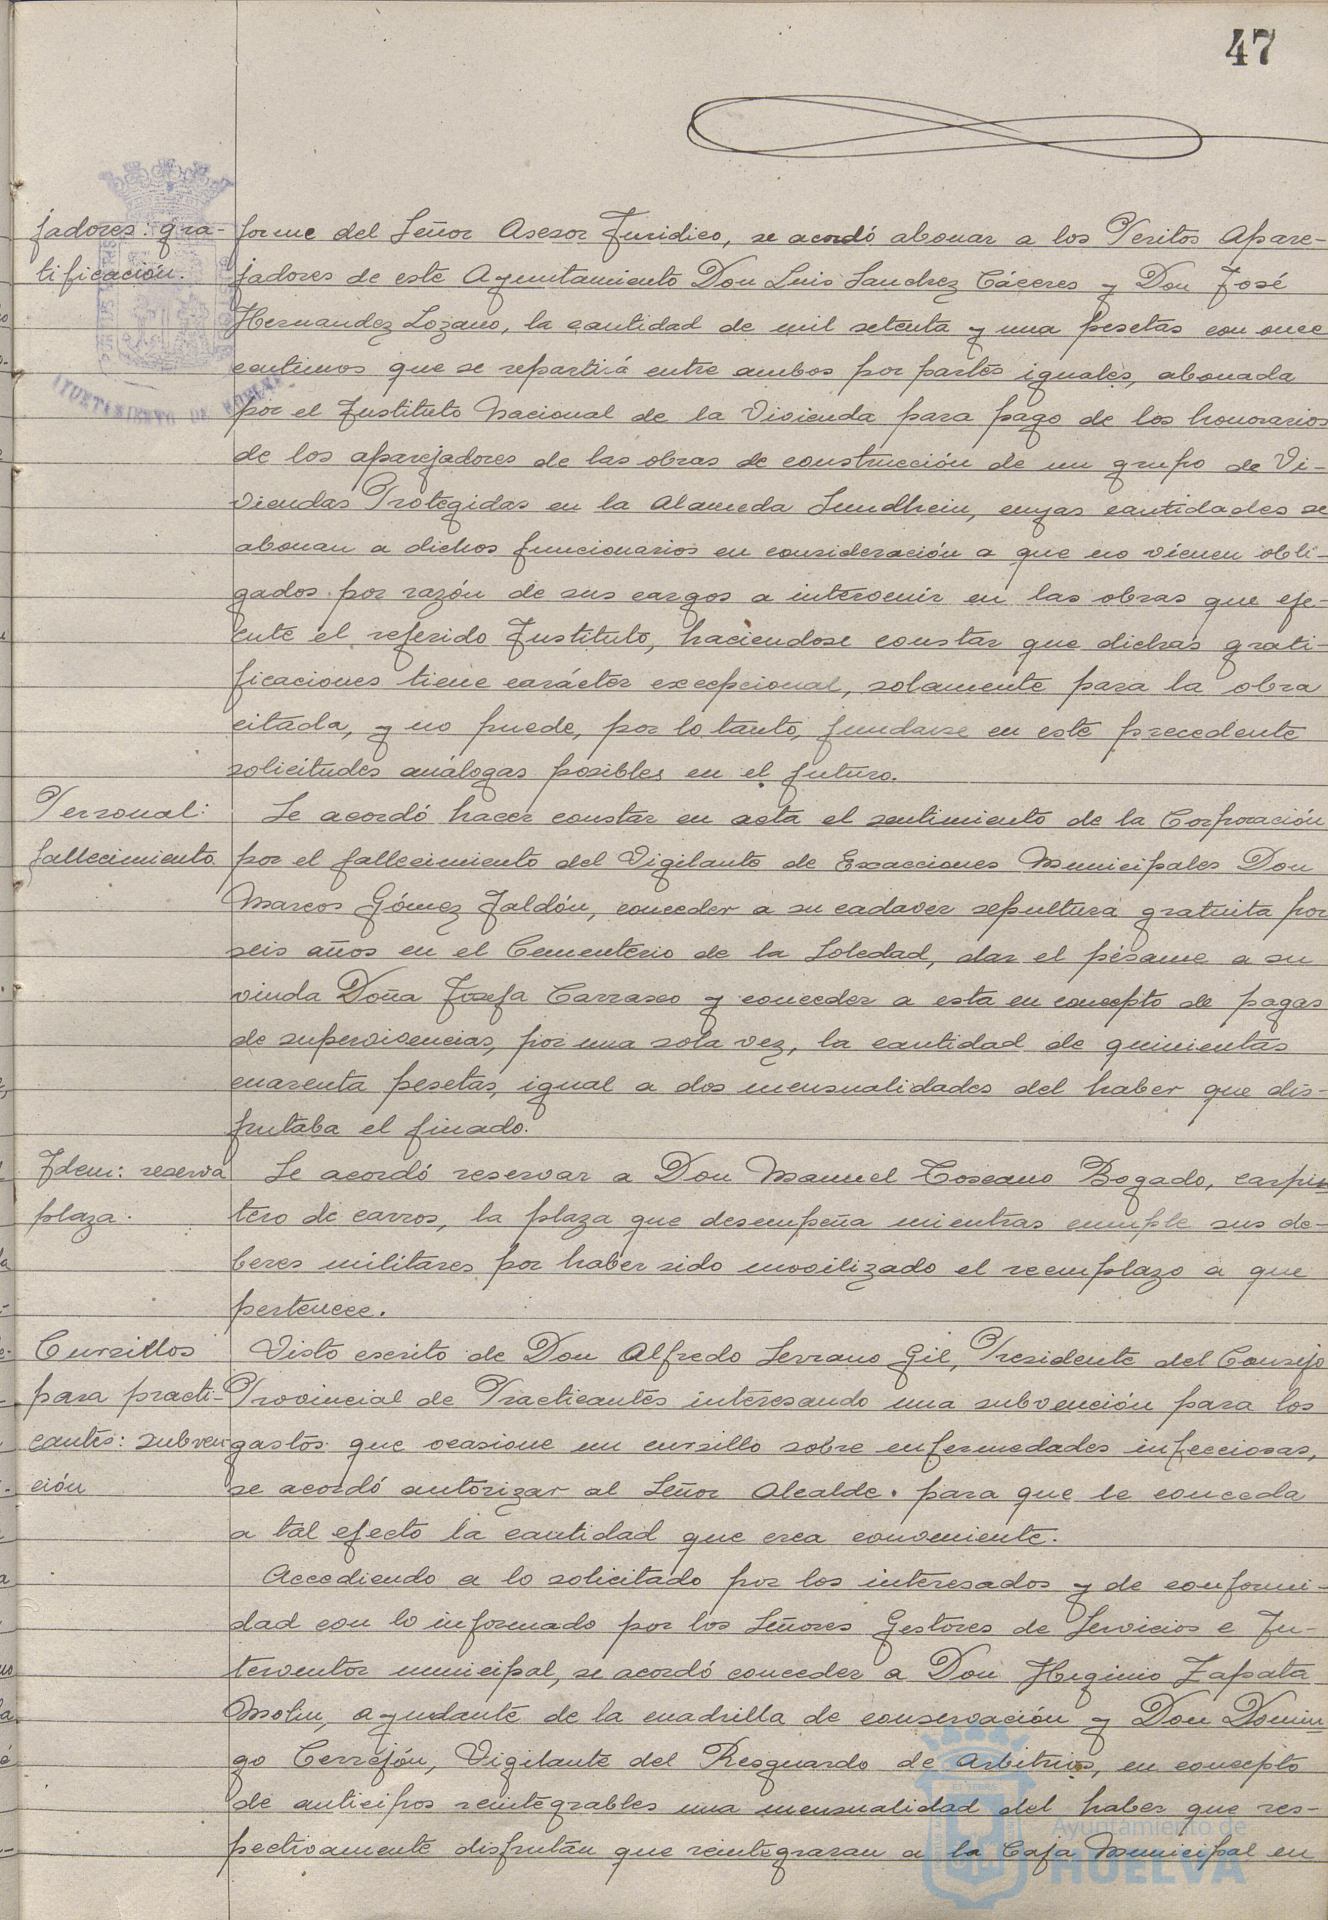 47
jadores: gra-
tificación.
forme del Señor Asesor Juridico, se acordó abonar a los Peritos Apare-
jadores de este Ayuntamiento Don Luis Sanchez Cáceres y Don José
Hernandez Lozano, la cantidad de mil setenta y una pesetas con once
centimos que se repartirá entre ambos por partes iguales, abonada
por el Instituto Nacional de la Vivienda para pago de los honorarios
de los aparejadores de las obras de construcción de un grupo de Vi-
viendas Protegidas en la Alameda Sundhein, cuyas cantidades se
abonan a dichos funcionarios en consideración a que no vienen obli-
gados por razón de sus cargos a intervenir en las obras que eje-
cute el referido Instituto, haciendose constar que dichas grati-
ficaciones tiene carácter excepcional, solamente para la obra
citada, y no puede, por lo tanto, fundarse en este precedente
solicitudes análogas posibles en el futuro.
Personal:
fallecimiento
Se acordó hacer constar en acta el sentimiento de la Corporación
por el fallecimiento del Vigilante de Exacciones Municipales Don
Marcos Gómez Jaldón, conceder a su cadaver sepultura gratuita por
seis años en el Cementerio de la Soledad, dar el pésame a su
viuda Doña Josefa Carrasco y conceder a esta en concepto de pagas
de supervivencias, por una sola vez, la cantidad de quinientas
cuarenta pesetas, igual a dos mensualidades del haber que dis-
frutaba el finado.
Idem: reserva
plaza.
Se acordó reservar a Don Manuel Toscano Bogado, carpin
tero de carros, la plaza que desempeña mientras cumple sus de-
beres militares por haber sido movilizado el reemplazo a que
pertenece.
Cursillos
para practi-
cantes: subven-
ción
Visto escrito de Don Alfredo Serrano Gil, Presidente del Consejo
Provincial de Practicantes interesando una subvención para los
gastos que ocasione un cursillo sobre enfermedades infecciosas,
se acordó autorizar al Señor Alcalde. para que le conceda
a tal efecto la cantidad que crea conveniente.
Accediendo a lo solicitado por los interesados y de conformi-
dad con lo informado por los Señores Gestores de Servicios e In-
terventor municipal, se acordó conceder a Don Higinio Zapata
Molin, ayudante de la cuadrilla de conservación y Don Domin
go Cerrejón, Vigilante del Resguardo de Arbitrios, en concepto
de anticipos reintegrables una mensualidad del haber que res-
pectivamente disfrutan que reintegraran a la Caja Municipal en
AYUNTAMIENTO DE HUELVA
Ayuntamiento de
HUELVA